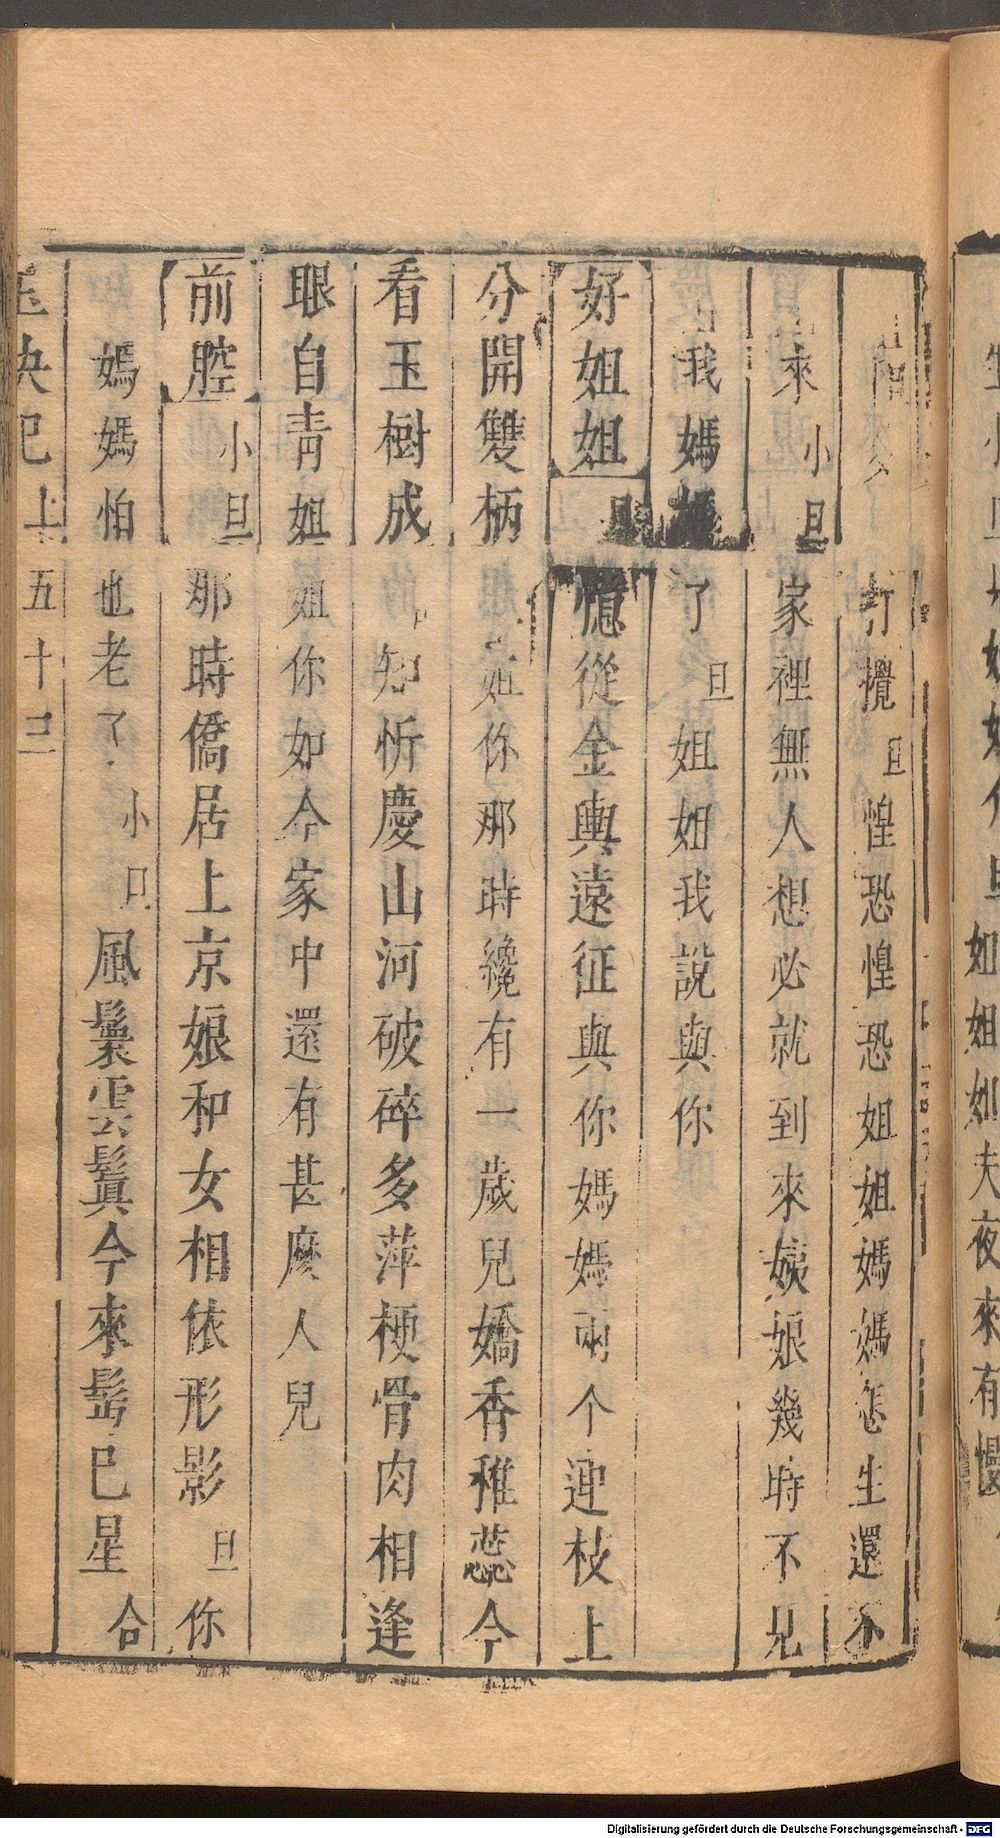 打攪旦惶恐惶恐姐姐媽媽怎生還不
來小旦家裡無人想必就到來姨娘幾時不見
我媽媽了旦姐姐我說與你
好姐姐旦憶從金輿遠征與你媽媽兩个連枝上
分開雙柄姐你那時纔有一歲兒嬌香稚蕊今
看玉樹成知忻慶山河破碎多萍梗骨肉相逢
眼自青姐姐你如今家中還有甚麼人兒
前腔小旦那時僑居上京娘和女相依形影旦你
媽媽怕也老了小旦風鬟雲鬢今來髩已星合
玉玦記上五十三
如姐如夫夜來有慢
Digitalisierung gefördert durch die Deutsche Forschungsgemeinschaft - DFG